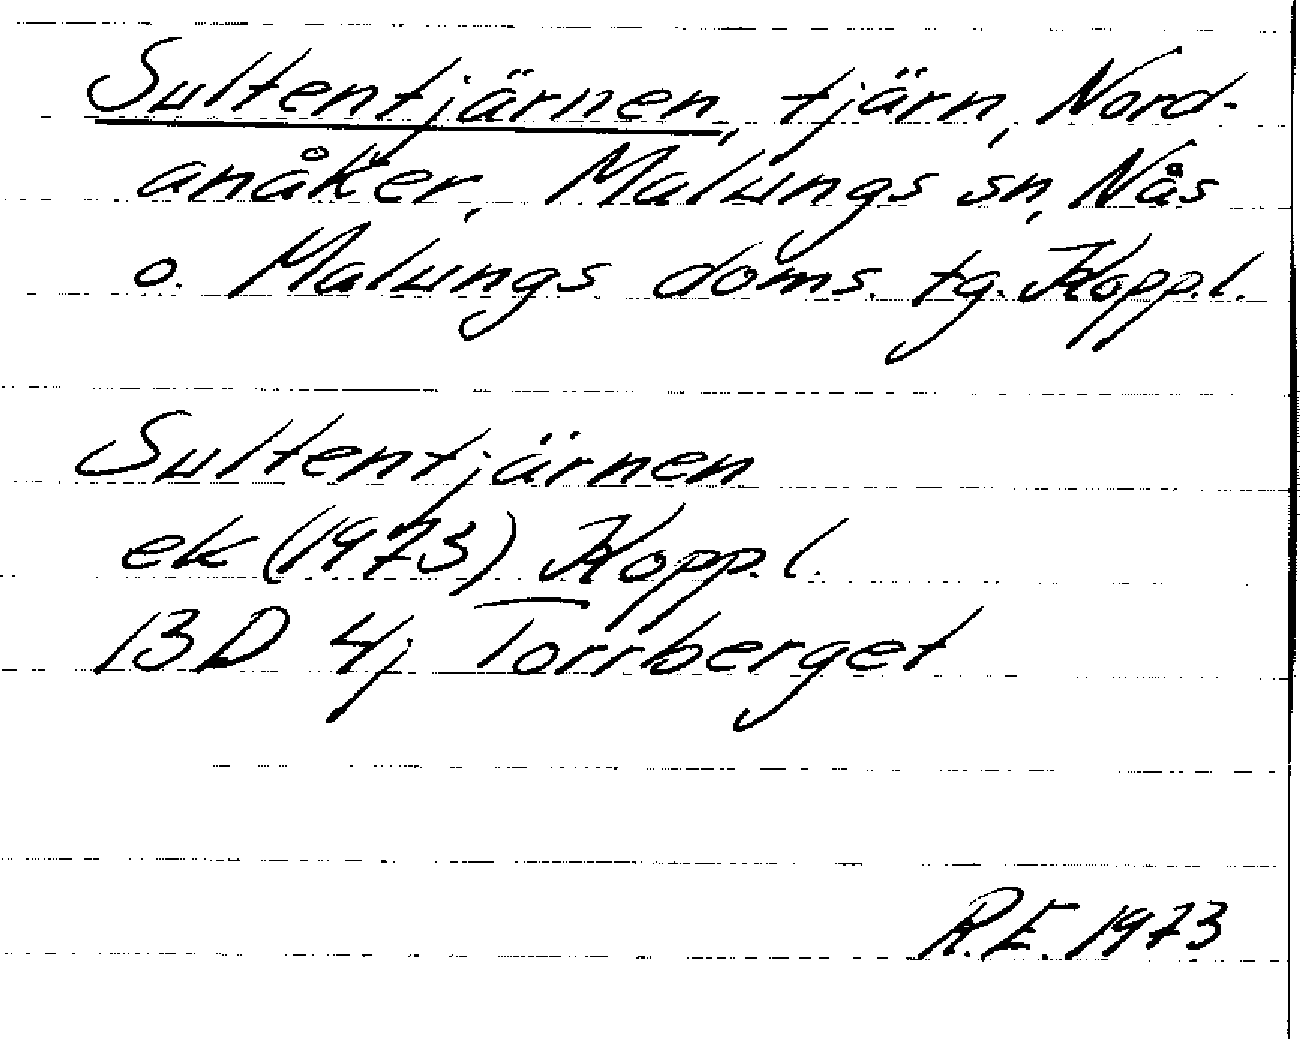 Sultentjärnen, tjärn, Nord-
anåker, Malungs sn, Nås
o. Malungs doms. tg. Kopp.l.
Sultentjärnen
ek (1973) Kopp.l.
13D 4j Torrberget
R.E. 1973